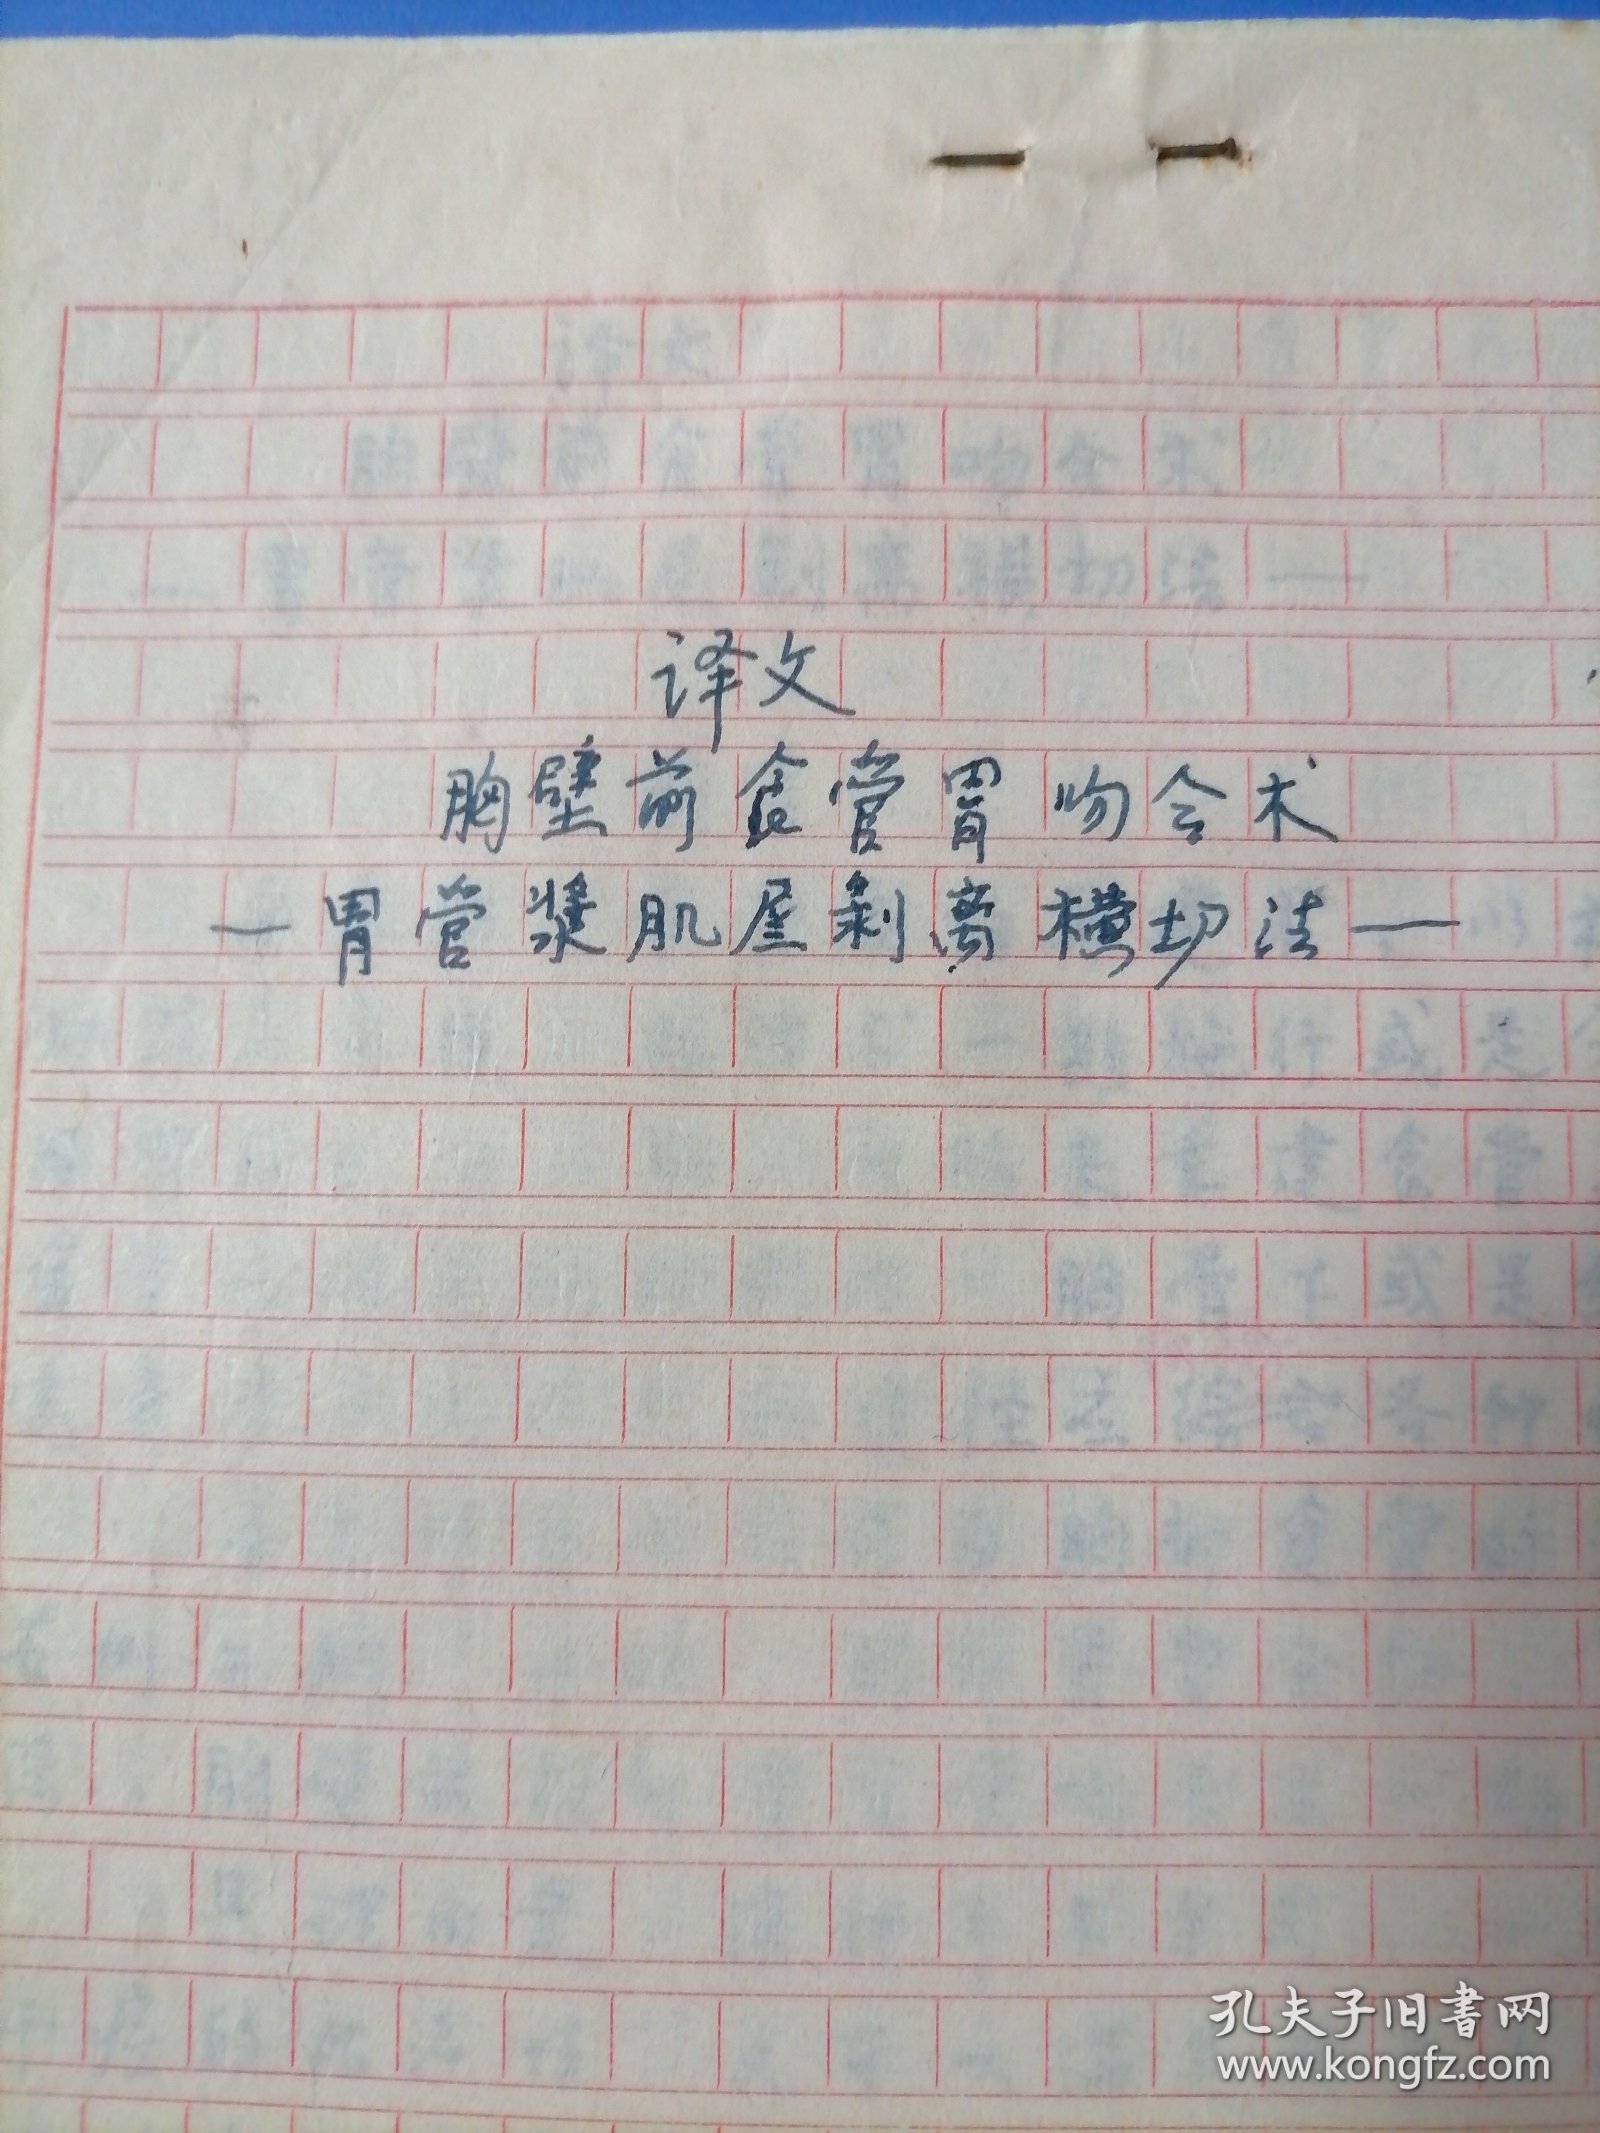 译文
胸壁前食管胃吻合术
—胃管浆肌层剥离横切法—
孔夫子旧书网
www.kongfz.com